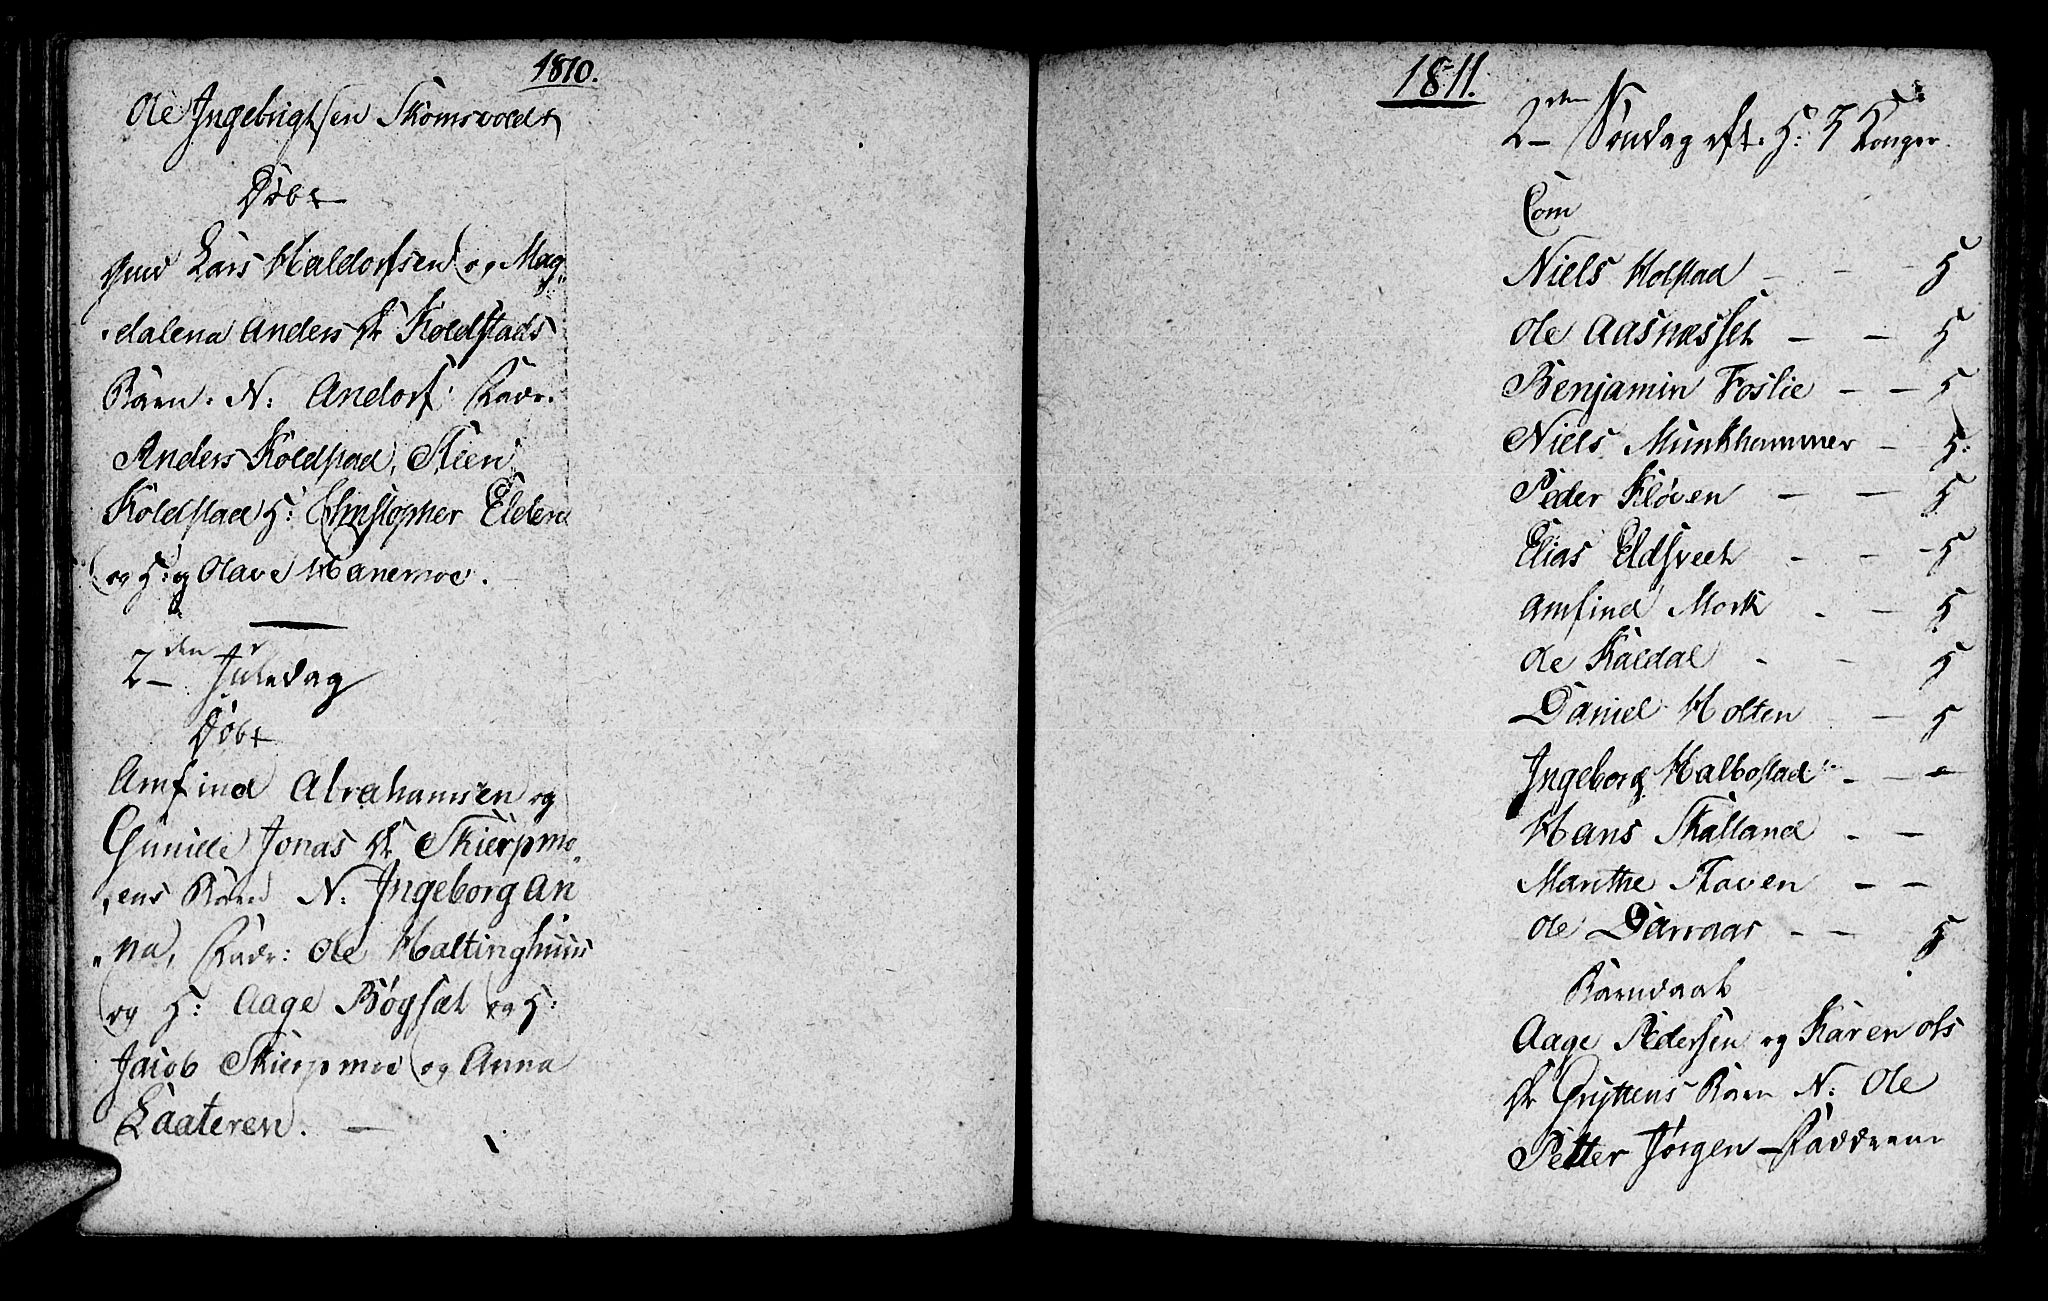 1810.
Ole Ingebrigtsen Skomsvoldt
Døbt
Lars Haldorsen og Mag„
„dalena Anders Dr Koldstads
Barn. N: Andors Fadr.
Anders Koldstad, Steen
Koldstad H: Christopher Elden
og H: og Olave Hanemoe.
2den Juledag
Døbt
Amfind Abrahamsen og
Gunilde Jonas Dr Skierpmo„
„ens Barn N: Ingeborg An
„na, Fadr: Ole Haltinghuus
og H: Aage Bøgsæt og H:
Jacob Skierpmoe og Anna
Laateren.
1811.
2den Søndag eft. H: 3 Konger.
Com
Niels Holstad - - - H
Ole Aasnæsset - - H
Benjamin Foslie - - H
Niels Munkhammer - H:
Peder Kløven - - H
Elias Eldsveet - - - H
Amfind Mork - - H
Ole Kaldal - - H
Daniel Holten - - H
Ingeborg Halbostad - - -
Hans Skalland - -
Marithe Staven - -
Ole Darraas - - H
Barndaab
Aage Pedersen og Karen Ols
Dr Gryttens Barn N: Ole
Petter Jørgen - Fadderne